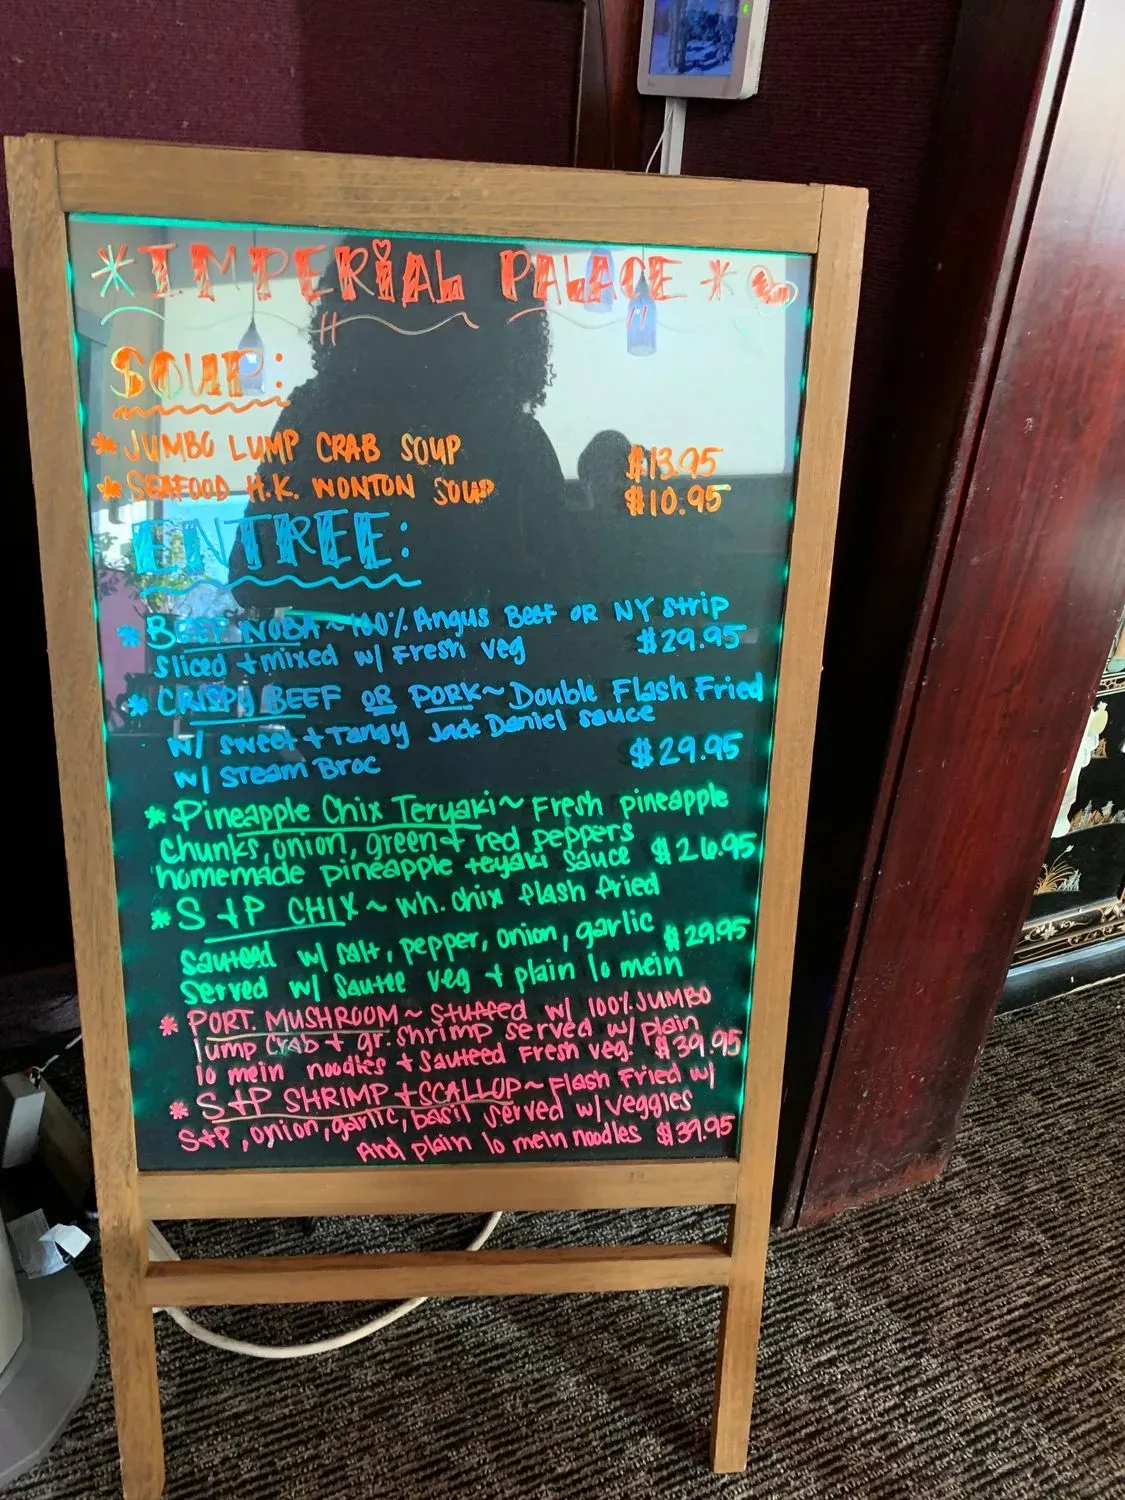 * IMPERIAL PALACE *
SOUP:
* JUMBO LUMP CRAB SOUP $13.95
* SEAFOOD H.K. WONTON SOUP $10.95
ENTREE:
* BEEF NOBA ~ 100% Angus Beef OR NY strip
sliced + mixed w/ Fresh veg $29.95
* CRISPY BEEF OR PORK ~ Double Flash Fried
w/ sweet + Tangy Jack Daniel sauce
w/ STEAM BROC $29.95
* Pineapple Chix Teryaki ~ Fresh pineapple
chunks, onion, green + red peppers
homemade pineapple teyaki sauce $26.95
* S+P CHIX ~ wh. chix flash fried
sauteed w/ salt, pepper, onion, garlic $29.95
served w/ sautee veg + plain lo mein
* PORT. MUSHROOM ~ stuffed w/ 100% JUMBO
lump crab + gr. shrimp served w/ plain
lo mein noodles + sauteed Fresh veg. $39.95
* S+P SHRIMP + SCALLOP ~ Flash Fried w/
S+P, onion, garlic, basil served w/ veggies
And plain lo mein noodles $39.95